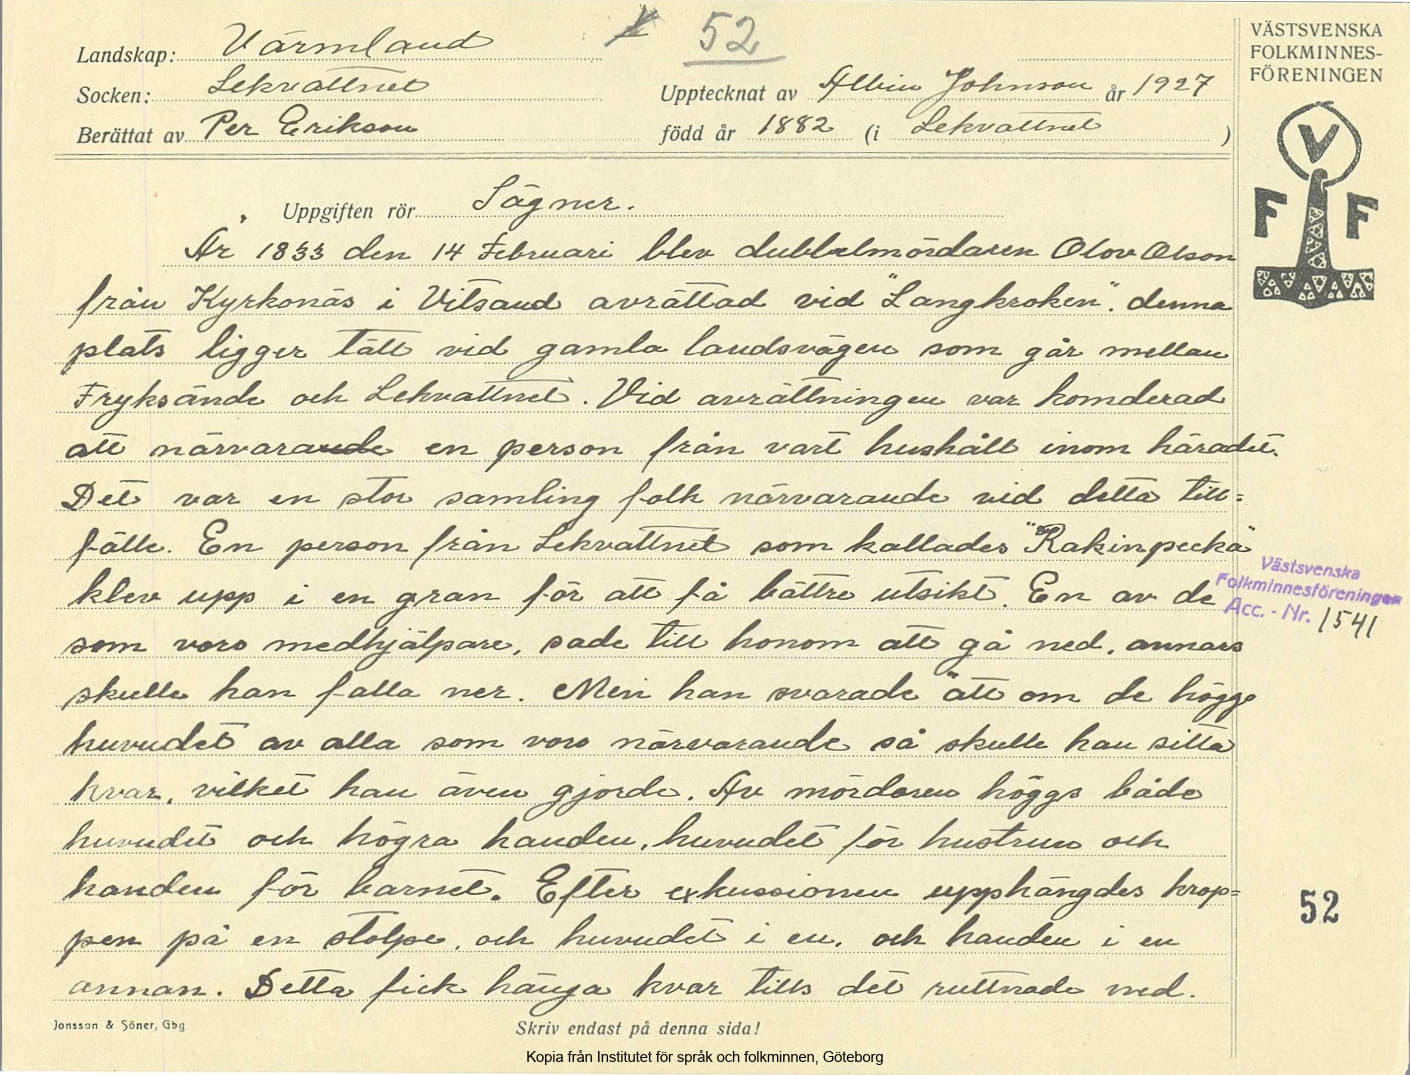 52
Landskap: Värmland
Socken: Lekvattnet
Upptecknat av Albin Johnson år 1927
Berättat av Per Erikson
född år 1882 (i Lekvattnet )
VÄSTSVENSKA
FOLKMINNES-
FÖRENINGEN
V
F F
Uppgiften rör Sägner.
År 1833 den 14 Februari blev dubbelmördaren Olov Olson
från Kyrkonäs i Vitsand avrättad vid "Långkroken". denna
plats ligger tätt vid gamla landsvägen som går mellan
Fryksände och Lekvattnet. Vid avrättningen var komderad
att närvarande en person från vart hushållt inom häradet.
Det var en stor samling folk närvarande vid detta till=
fälle. En person från Lekvattnet som kallades "Rakinpeckä"
klev upp i en gran för att få bättre utsikt. En av de
som voro medhjälpare, sade till honom att gå ned, annars
skulle han falla ner. Men han svarade "att om de högge
huvudet av alla som voro närvarande så skulle han sitta
kvar, vilket han även gjorde. Av mördaren höggs både
huvudet och högra handen, huvudet för hustrun och
handen för barnet. Efter exkussionen upphängdes krop=
pen på en stolpe, och huvudet i en, och handen i en
annan. Detta fick hänga kvar tills det ruttnade ned.
Västsvenska
Folkminnesföreningen
Acc. - Nr. 1541
52
Jonsson & Söner, Gbg
Skriv endast på denna sida!
Kopia från Institutet för språk och folkminnen, Göteborg